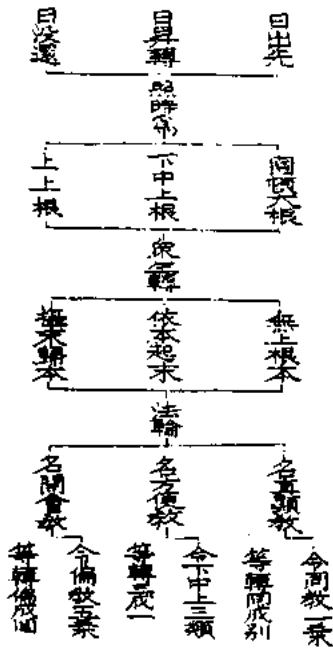 日出先
日昇轉
日没還
照時為
圓頓大根
下中上根
上上根
衆生轉
無上根本
依本起末
攝末歸本
法輪
名直顯教
名方便教
名開會教
令同教一乘
等轉同成別
令下中上三類
等轉三成一
令偏教五乘
等轉偏成圓